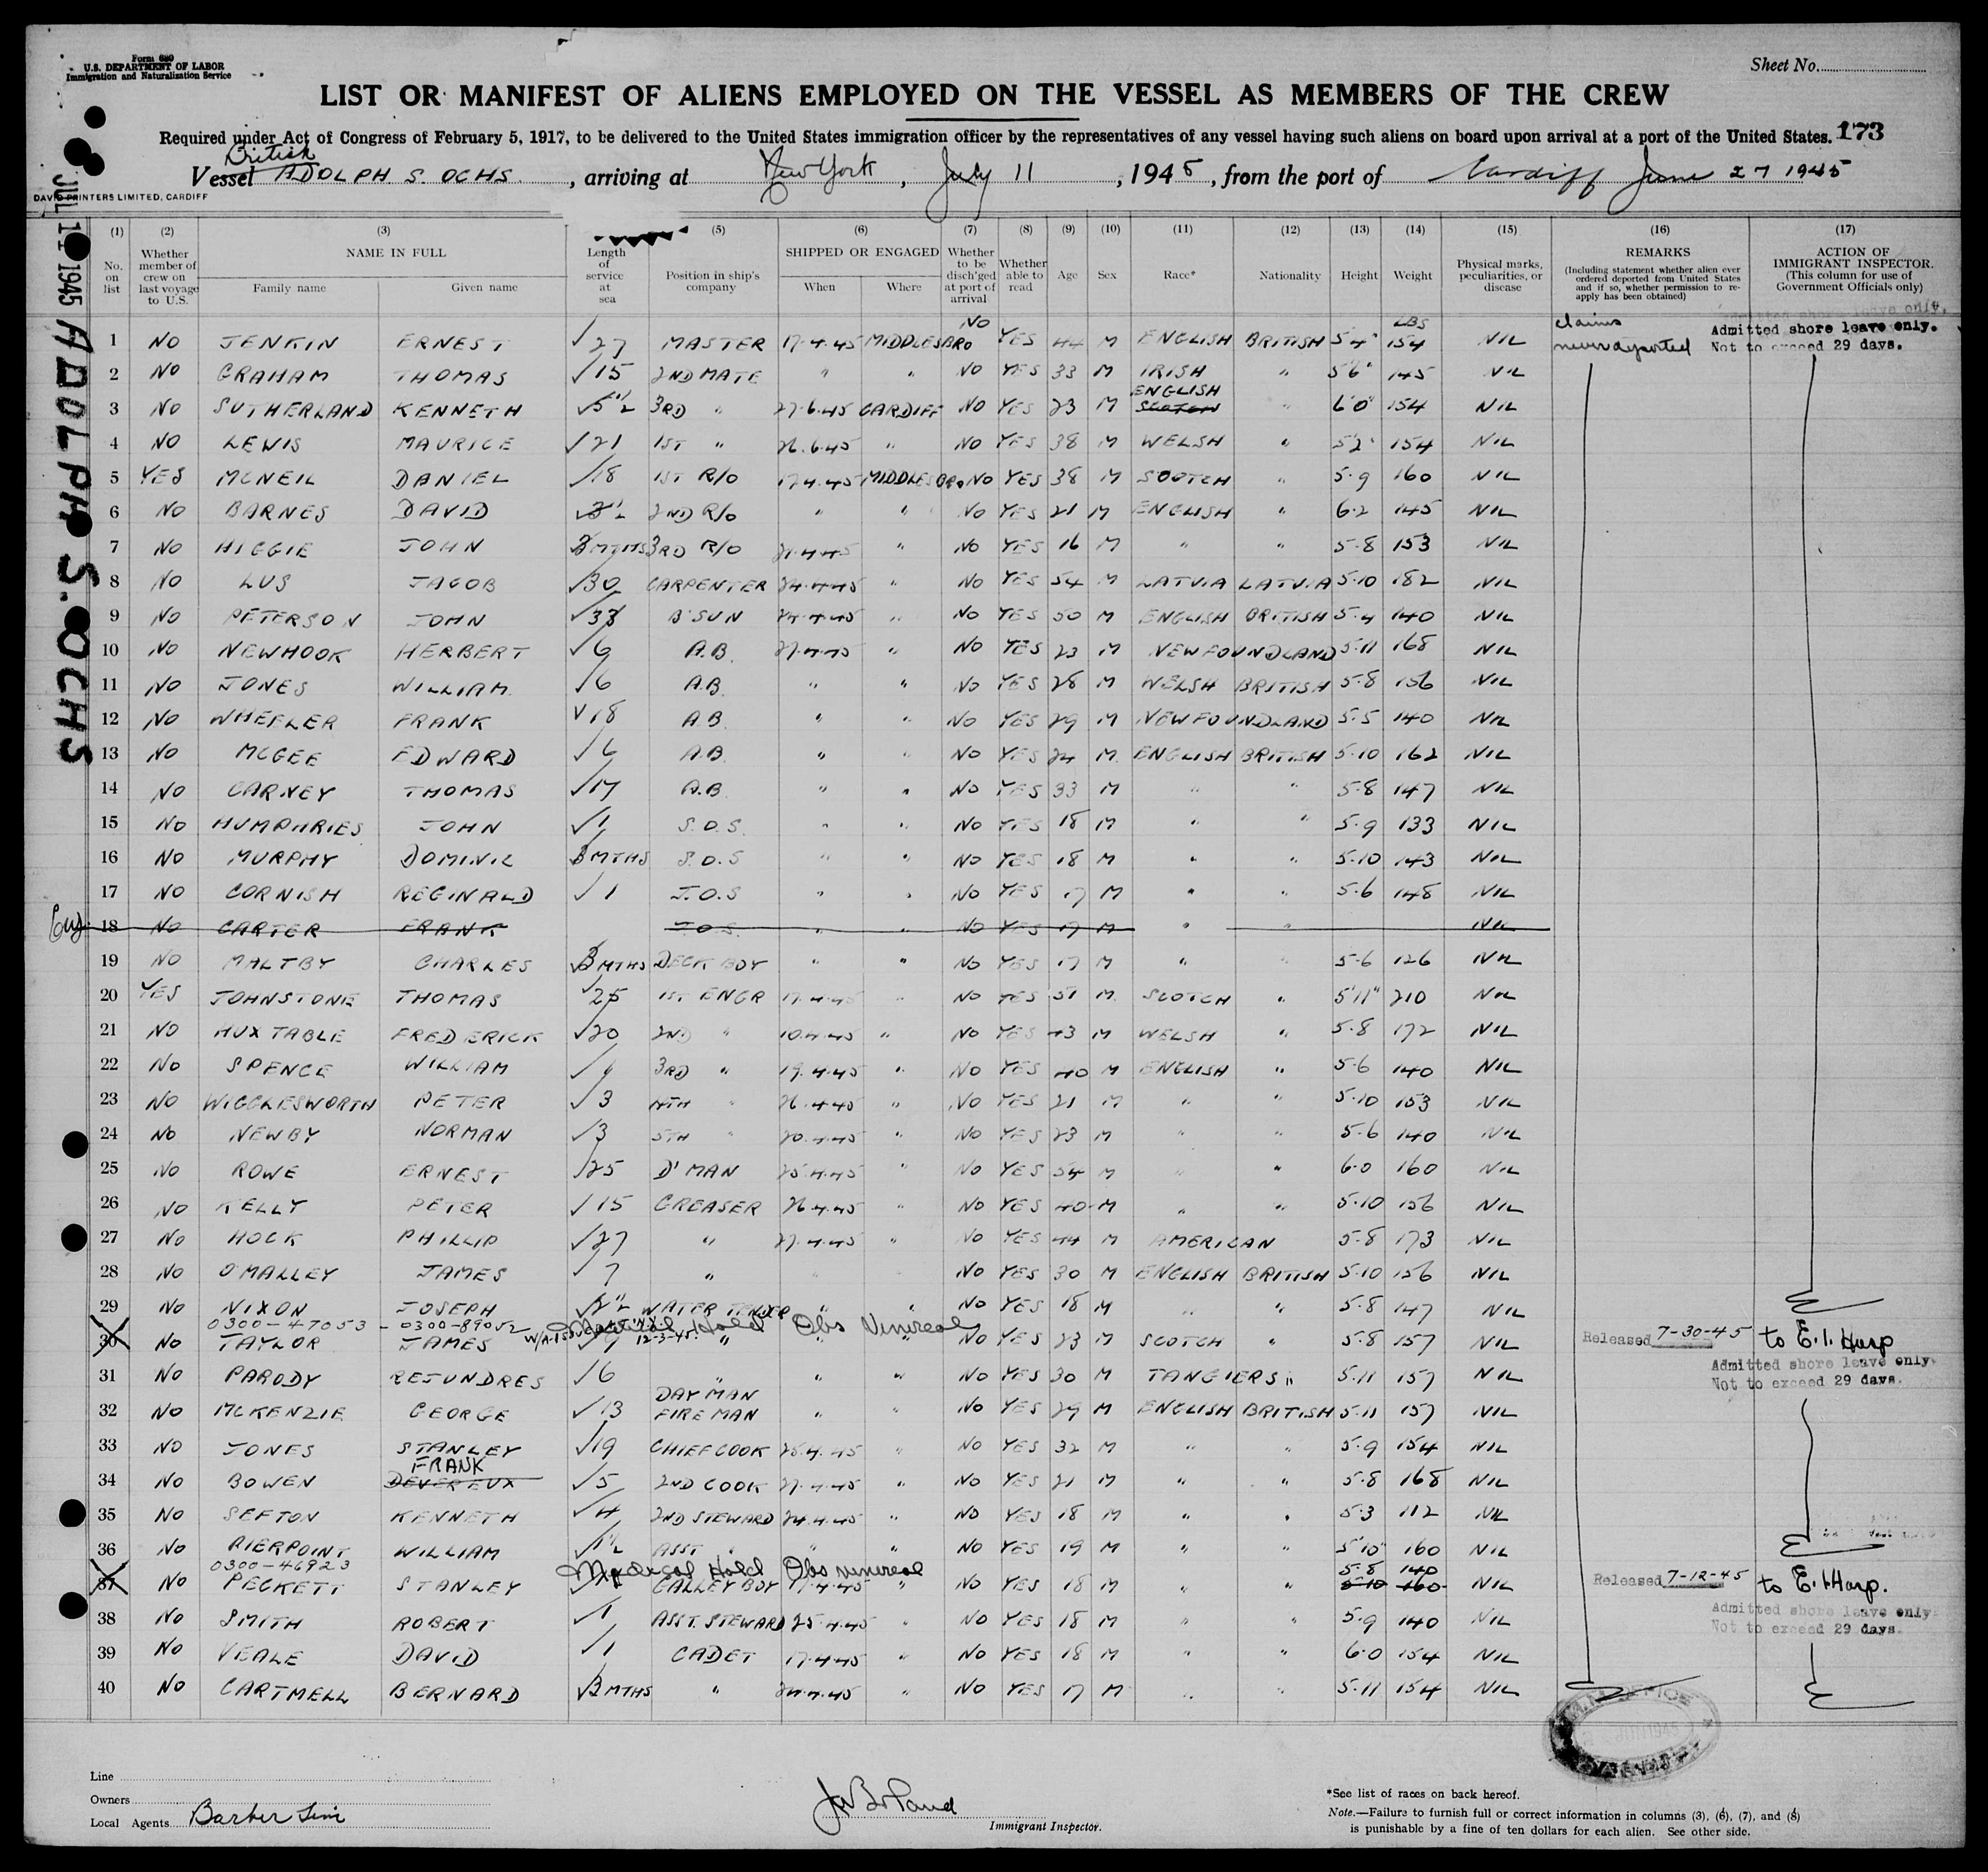 Form 680
U.S. DEPARTMENT OF LABOR
Immigration and Naturalization Service
Sheet No.
LIST OR MANIFEST OF ALIENS EMPLOYED ON THE VESSEL AS MEMBERS OF THE CREW
Required under Act of Congress of February 5, 1917, to be delivered to the United States immigration officer by the representatives of any vessel having such aliens on board upon arrival at a port of the United States. 173
British
Vessel ADOLPH S. OCHS, arriving at New York, July 11, 1945, from the port of Cardiff June 27 1945
DAVID PRINTERS LIMITED, CARDIFF
JUL 11 1945 ADOLPH S. OCHS
(1) (2) (3) (5) (6) (7) (8) (9) (10) (11) (12) (13) (14) (15) (16) (17)
No. on list
Whether member of crew on last voyage to U.S.
NAME IN FULL
Family name Given name
Length of service at sea
Position in ship's company
SHIPPED OR ENGAGED
When Where
Whether to be disch'ged at port of arrival
Whether able to read
Age Sex Race* Nationality Height Weight
Physical marks, peculiarities, or disease
REMARKS
(Including statement whether alien ever ordered deported from United States and if so, whether permission to re-apply has been obtained)
ACTION OF IMMIGRANT INSPECTOR.
(This column for use of Government Officials only)
1 NO JENKIN ERNEST 27 MASTER 17.4.45 MIDDLESBRO NO YES 44 M ENGLISH BRITISH 5-4" 154 LBS NIL claims never deported Admitted shore leave only. Not to exceed 29 days.
2 NO GRAHAM THOMAS 15 2ND MATE " " NO YES 33 M IRISH " 5'6" 145 NIL
3 NO SUTHERLAND KENNETH 5½ 3RD " 27.6.45 CARDIFF NO YES 23 M ENGLISH SCOTCH " 6'0" 154 NIL
4 NO LEWIS MAURICE 21 1ST " 26.6.45 " NO YES 38 M WELSH " 5'2" 154 NIL
5 YES MCNEIL DANIEL 18 1ST R/O 17.4.45 MIDDLESBRO NO YES 38 M SCOTCH " 5.9 160 NIL
6 NO BARNES DAVID 2ND R/O " " NO YES 21 M ENGLISH " 6.2 145 NIL
7 NO HIGGIE JOHN 3 MTHS 3RD R/O 21.4.45 " NO YES 16 M " " 5-8 153 NIL
8 NO LUS JACOB 30 CARPENTER 24.4.45 " NO YES 54 M LATVIA LATVIA 5-10 182 NIL
9 NO PETERSON JOHN 33 B'SUN 24.4.45 " NO YES 50 M ENGLISH BRITISH 5-4 140 NIL
10 NO NEWHOOK HERBERT 6 A.B. 27.4.45 " NO YES 23 M NEWFOUNDLAND 5-11 168 NIL
11 NO JONES WILLIAM 6 A.B. " " NO YES 28 M WELSH BRITISH 5-8 156 NIL
12 NO WHEELER FRANK 18 A.B. " " NO YES 29 M NEWFOUNDLAND 5-5 140 NIL
13 NO MCGEE EDWARD 6 A.B. " " NO YES 24 M ENGLISH BRITISH 5-10 162 NIL
14 NO CARNEY THOMAS 17 A.B. " " NO YES 33 M " " 5-8 147 NIL
15 NO HUMPHRIES JOHN 1 S.O.S. " " NO YES 18 M " " 5-9 133 NIL
16 NO MURPHY DOMINIC 3 MTHS S.O.S " " NO YES 18 M " " 5-10 143 NIL
17 NO CORNISH REGINALD 1 J.O.S " " NO YES 17 M " " 5-6 148 NIL
18 NO CARTER FRANK J.O.S. " " NO YES 17 M " " NIL
19 NO MALTBY CHARLES 3 MTHS DECK BOY " " NO YES 17 M " " 5-6 126 NIL
20 YES JOHNSTONE THOMAS 25 1ST ENGR 17.4.45 " NO YES 51 M SCOTCH " 5'11" 210 NIL
21 NO HUXTABLE FREDERICK 20 2ND " 10.4.45 " NO YES 43 M WELSH " 5-8 172 NIL
22 NO SPENCE WILLIAM 3RD " 19.4.45 " NO YES 40 M ENGLISH " 5-6 140 NIL
23 NO WIGGLESWORTH PETER 3 4TH " 26.4.45 " NO YES 21 M " " 5-10 153 NIL
24 NO NEWBY NORMAN 3 5TH " 20.4.45 " NO YES 23 M " " 5-6 140 NIL
25 NO ROWE ERNEST 25 D'MAN 25.4.45 " NO YES 54 M " " 6-0 160 NIL
26 NO KELLY PETER 15 GREASER 26.4.45 " NO YES 40 M " " 5-10 156 NIL
27 NO HOCK PHILLIP 27 " 27.4.45 " NO YES 44 M AMERICAN 5-8 173 NIL
28 NO O'MALLEY JAMES 7 " NO YES 30 M ENGLISH BRITISH 5-10 156 NIL
29 NO NIXON JOSEPH 2½ WATER TENDER " " NO YES 18 M " " 5-8 147 NIL
0300-47053 - 0300-89052 Medical Hold Obs Venereal
30 NO TAYLOR JAMES 9 12-3-45 " " " NO YES 23 M SCOTCH " 5-8 157 NIL Released 7-30-45 to E.I. Harp
31 NO PARODY REJUNDRES 6 " " " NO YES 30 M TANGIERS " 5-11 157 NIL Admitted shore leave only. Not to exceed 29 days.
32 NO MCKENZIE GEORGE 13 DAY MAN FIREMAN " " NO YES 29 M ENGLISH BRITISH 5-11 157 NIL
33 NO JONES STANLEY 19 CHIEF COOK 25.4.45 " NO YES 32 M " " 5-9 154 NIL
34 NO BOWEN FRANK DEVEREUX 5 2ND COOK 27.4.45 " NO YES 21 M " " 5-8 168 NIL
35 NO SEFTON KENNETH 4 2ND STEWARD 24.4.45 " NO YES 18 M " " 5-3 112 NIL
36 NO PIERPOINT WILLIAM 1½ ASST " " " NO YES 19 M " " 5'10" 160 NIL
0300-46923 Medical Hold Obs venereal 5-8 140
37 NO PECKETT STANLEY GALLEY BOY 17.4.45 " NO YES 18 M " " 5-10 160 NIL Released 7-12-45 to E.I. Harp.
38 NO SMITH ROBERT 1 ASST. STEWARD 25.4.45 " NO YES 18 M " " 5-9 140 NIL Admitted shore leave only. Not to exceed 29 days.
39 NO VEALE DAVID 1 CADET 17.4.45 " NO YES 18 M " " 6-0 154 NIL
40 NO CARTMELL BERNARD 3 MTHS " 24.4.45 " NO YES 17 M " " 5-11 154 NIL
Line
Owners
Local Agents Barber Line
Immigrant Inspector.
*See list of races on back hereof.
Note.—Failure to furnish full or correct information in columns (3), (6), (7), and (8)
is punishable by a fine of ten dollars for each alien. See other side.